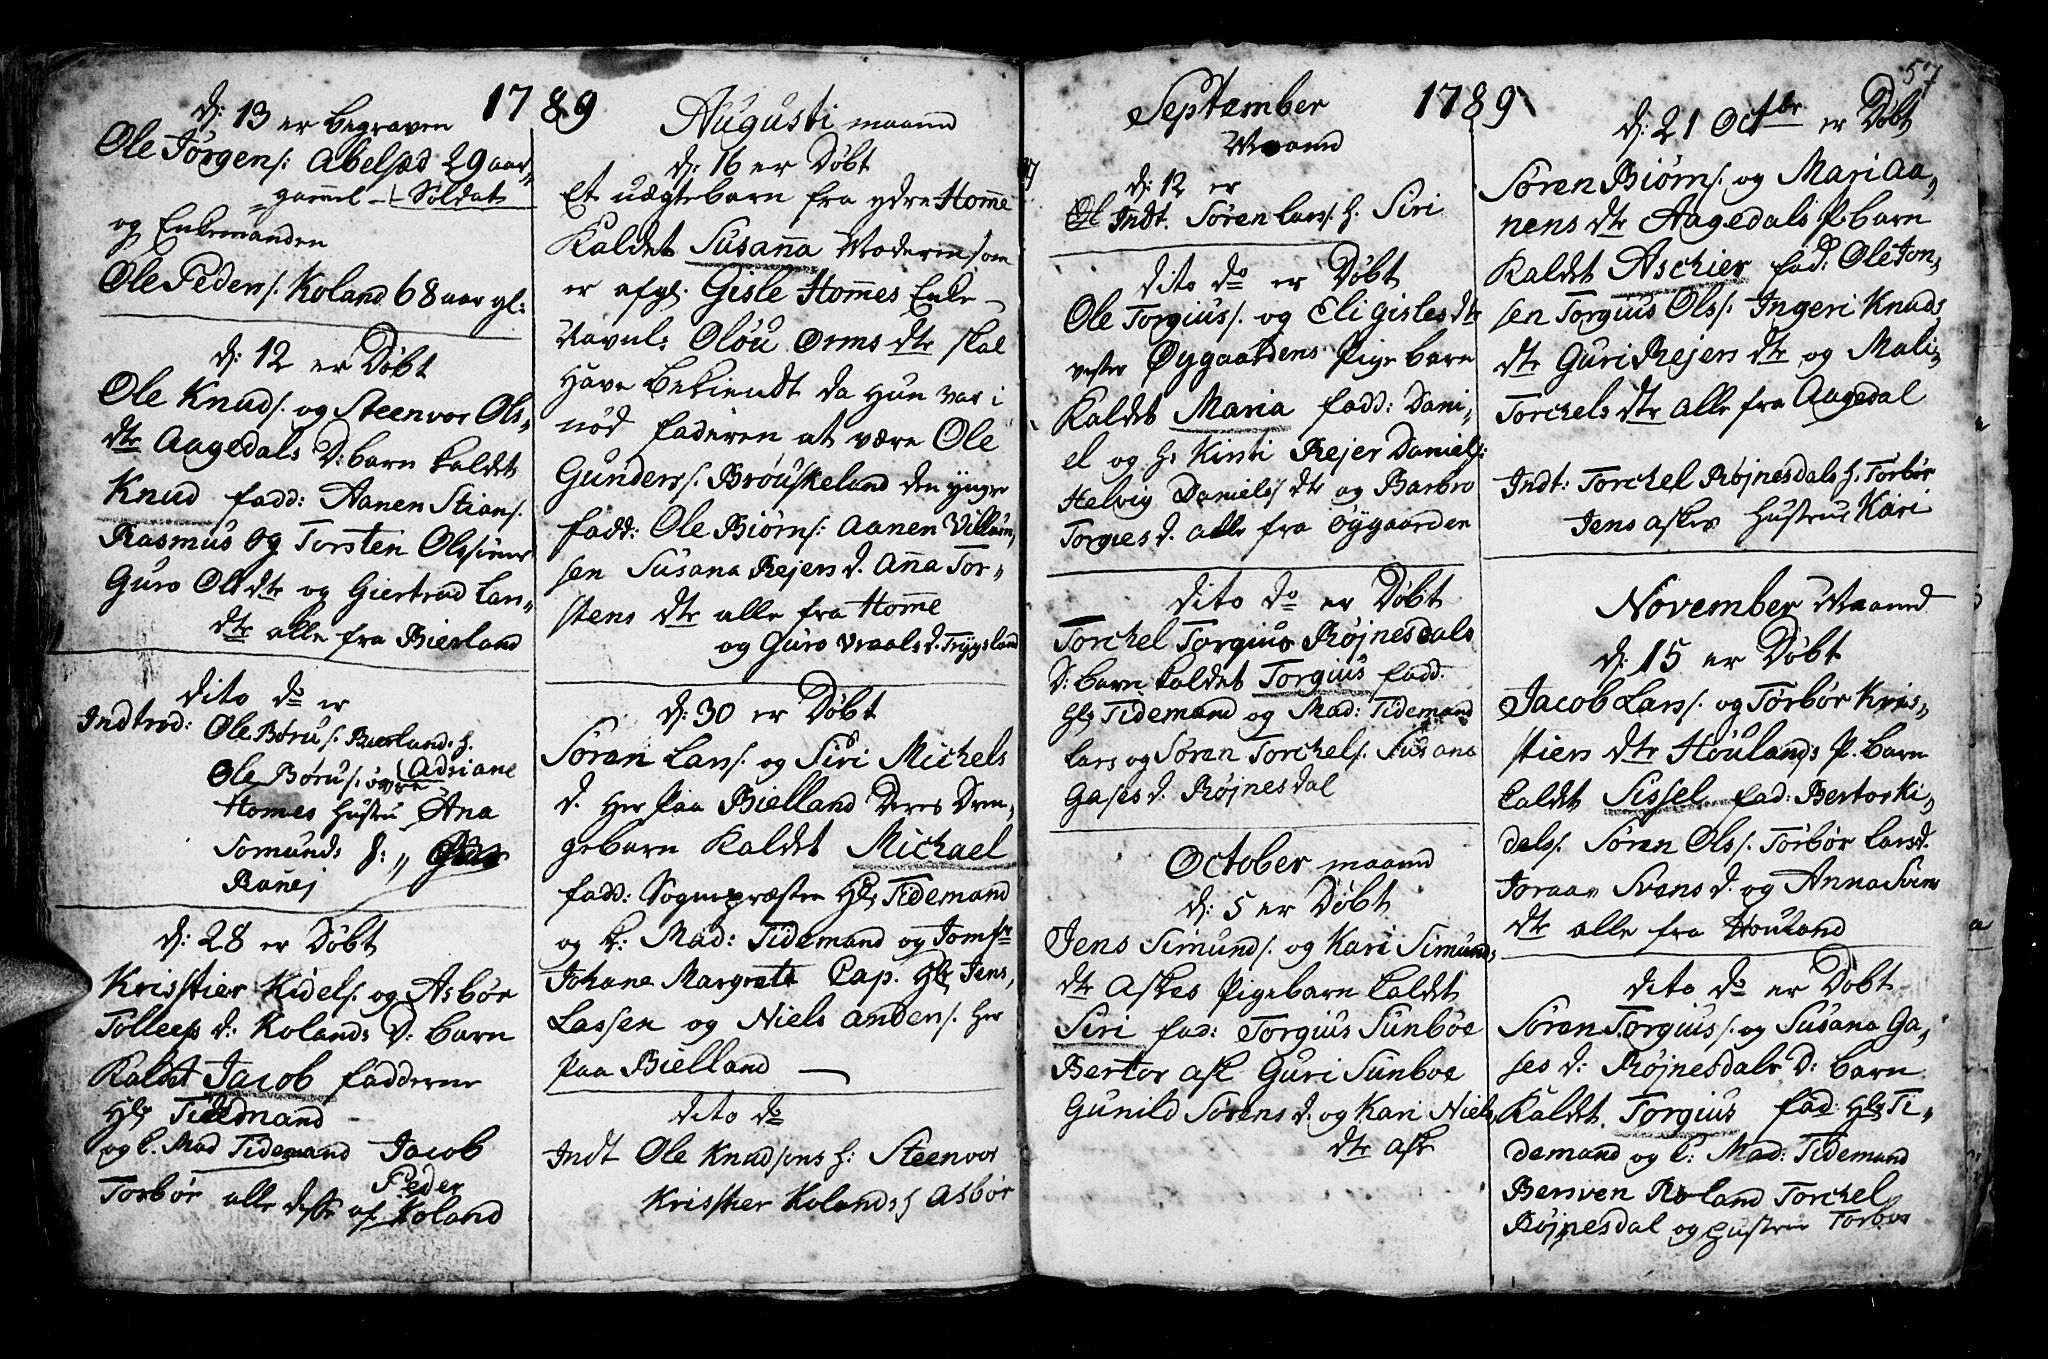 1789
d: 13 er begraven
Ole Jørgens: Abelsæd 29 aar
gammel - Soldat
og Enkemanden
Ole Peders. Koland 68 aar gl:
d: 12 er Døbt
Ole Knuds. og Steenvor Ols,
dtr Aagedals D: barn kaldet
Knud fadd: Aanen Stians.
Rasmus og Torsten Olssøner
Guro Ols dtr og Giertrud Lars,
dtr alle fra Bierland
dito do er
Indtrod: Ole Børus. Bierlands h.
Adriane
Ole Børus. øvre
Homes Hustru Ana
Tomunds
d: 28 er Døbt
Krisstier Kidels. og Asbør
Tollefs d: Kolands D: barn
Kaldet Jacob fadderne
Hr Tidemand
og k. Mad Tidemand Jacob
Peder
Torbør alle disse af Koland
Augusti maaned
d: 16 er Døbt
Et uægte barn fra ydre Home
Kaldet Susanna Moderen som
er afgl. Gisle Homes Enke
Navnl: Olou Orms dtr skal
Have bekiendt da Hun var i
nød faderen at være Ole
Gunders. Brouskeland den yngre
fadd: Ole Biørns: Aanen Villum,
sen Susana Rejers d. Anna Tor,
stens dtr alle fra Home
og Guro Vraals d. Trygsland
d: 30 er Døbt
Søren Lars. og Siri Michels
d. Her paa Bielland Deres Dren,
gebarn Kaldet Michael
fadd: Sognepræsten Hr Tidemand
og k: Mad: Tidemand og Jomfr
Johane Margrete Cap. Hr Jens,
Lassen og Niels Anders. Her
paa Bielland
dito do
Indt Ole Knudsens h: Steenvor
Krisstier Kolands h Asbør
57
September 1789
Maaned
d: 12 er
Indt. Søren Lars. h. Siri
dito do er Døbt
Ole Torgius. og Eli Gisles dtr
vester Øygaardens Pige barn
Kaldet Maria fadd: Dani,
el og h. Kirsti Rejer Daniels:
Helvig Daniels dtr og Barbro
Torgies d. alle fra Øygaarden
dito do er Døbt
Torchel Torgius Røjnesdals
D: barn kaldet Torgius fadd.
Hr Tidemand og Mad: Tidemand
Lars og Søren Torchels. Susana
Gases d. Røjnesdal
October maaned
d: 5 er Døbt
Jens Simunds. og Kari Simunds
dtr Askes Pigebarn kaldet
Siri fad: Torgius Sunboe
Bertor Ask Guri Sunboe
Gunild Sørens d. og Kari Niels
dtr Ask
d: 21 Octbr er Døbt
Søren Biørns. og Mari Aa,
nens dtr Aagedals P. barn
Kaldet Aschier fad: Ole Jon,
sen Torgius Ols. Ingeri Knuds
dtr Guri Rejers dtr og Mali,
Torchels dtr alle fra Aagedal
Indt: Torchel Røjnesdals h. Torbør
Jens Askes Hustrue Kari
November Maaned
d: 15 er Døbt
Jacob Lars. og Torbør Kris,
stiers dtr Houlands P. barn
kaldet Sissel fad: Bertor Ki,
dels. Søren Ols. Torbør Lars d.
Joraan Svens d. og Anna Svens
dtr alle fra Houland
dito do er Døbt
Søren Torgius. og Susana Ga,
ses d: Røjnesdals D: barn
Kaldet Torgius fad: Hr Ti,
demand og k: Mad: Tidemand
Bersven Roland Torchel
Røjnesdal og Hustrue Torbør